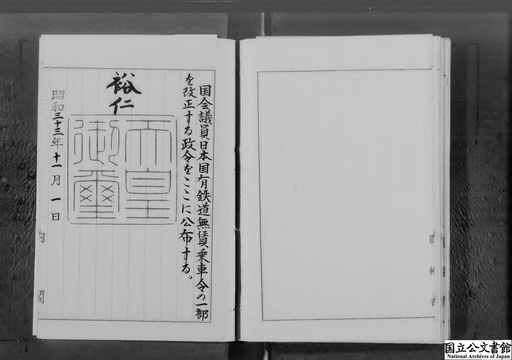 国会議員日本国有鉄道無賃乗車令の一部
を改正する政令をここに公布する。
裕仁
天皇
御璽
昭和三十三年十一月一日
国立公文書館
National Archives of Japan